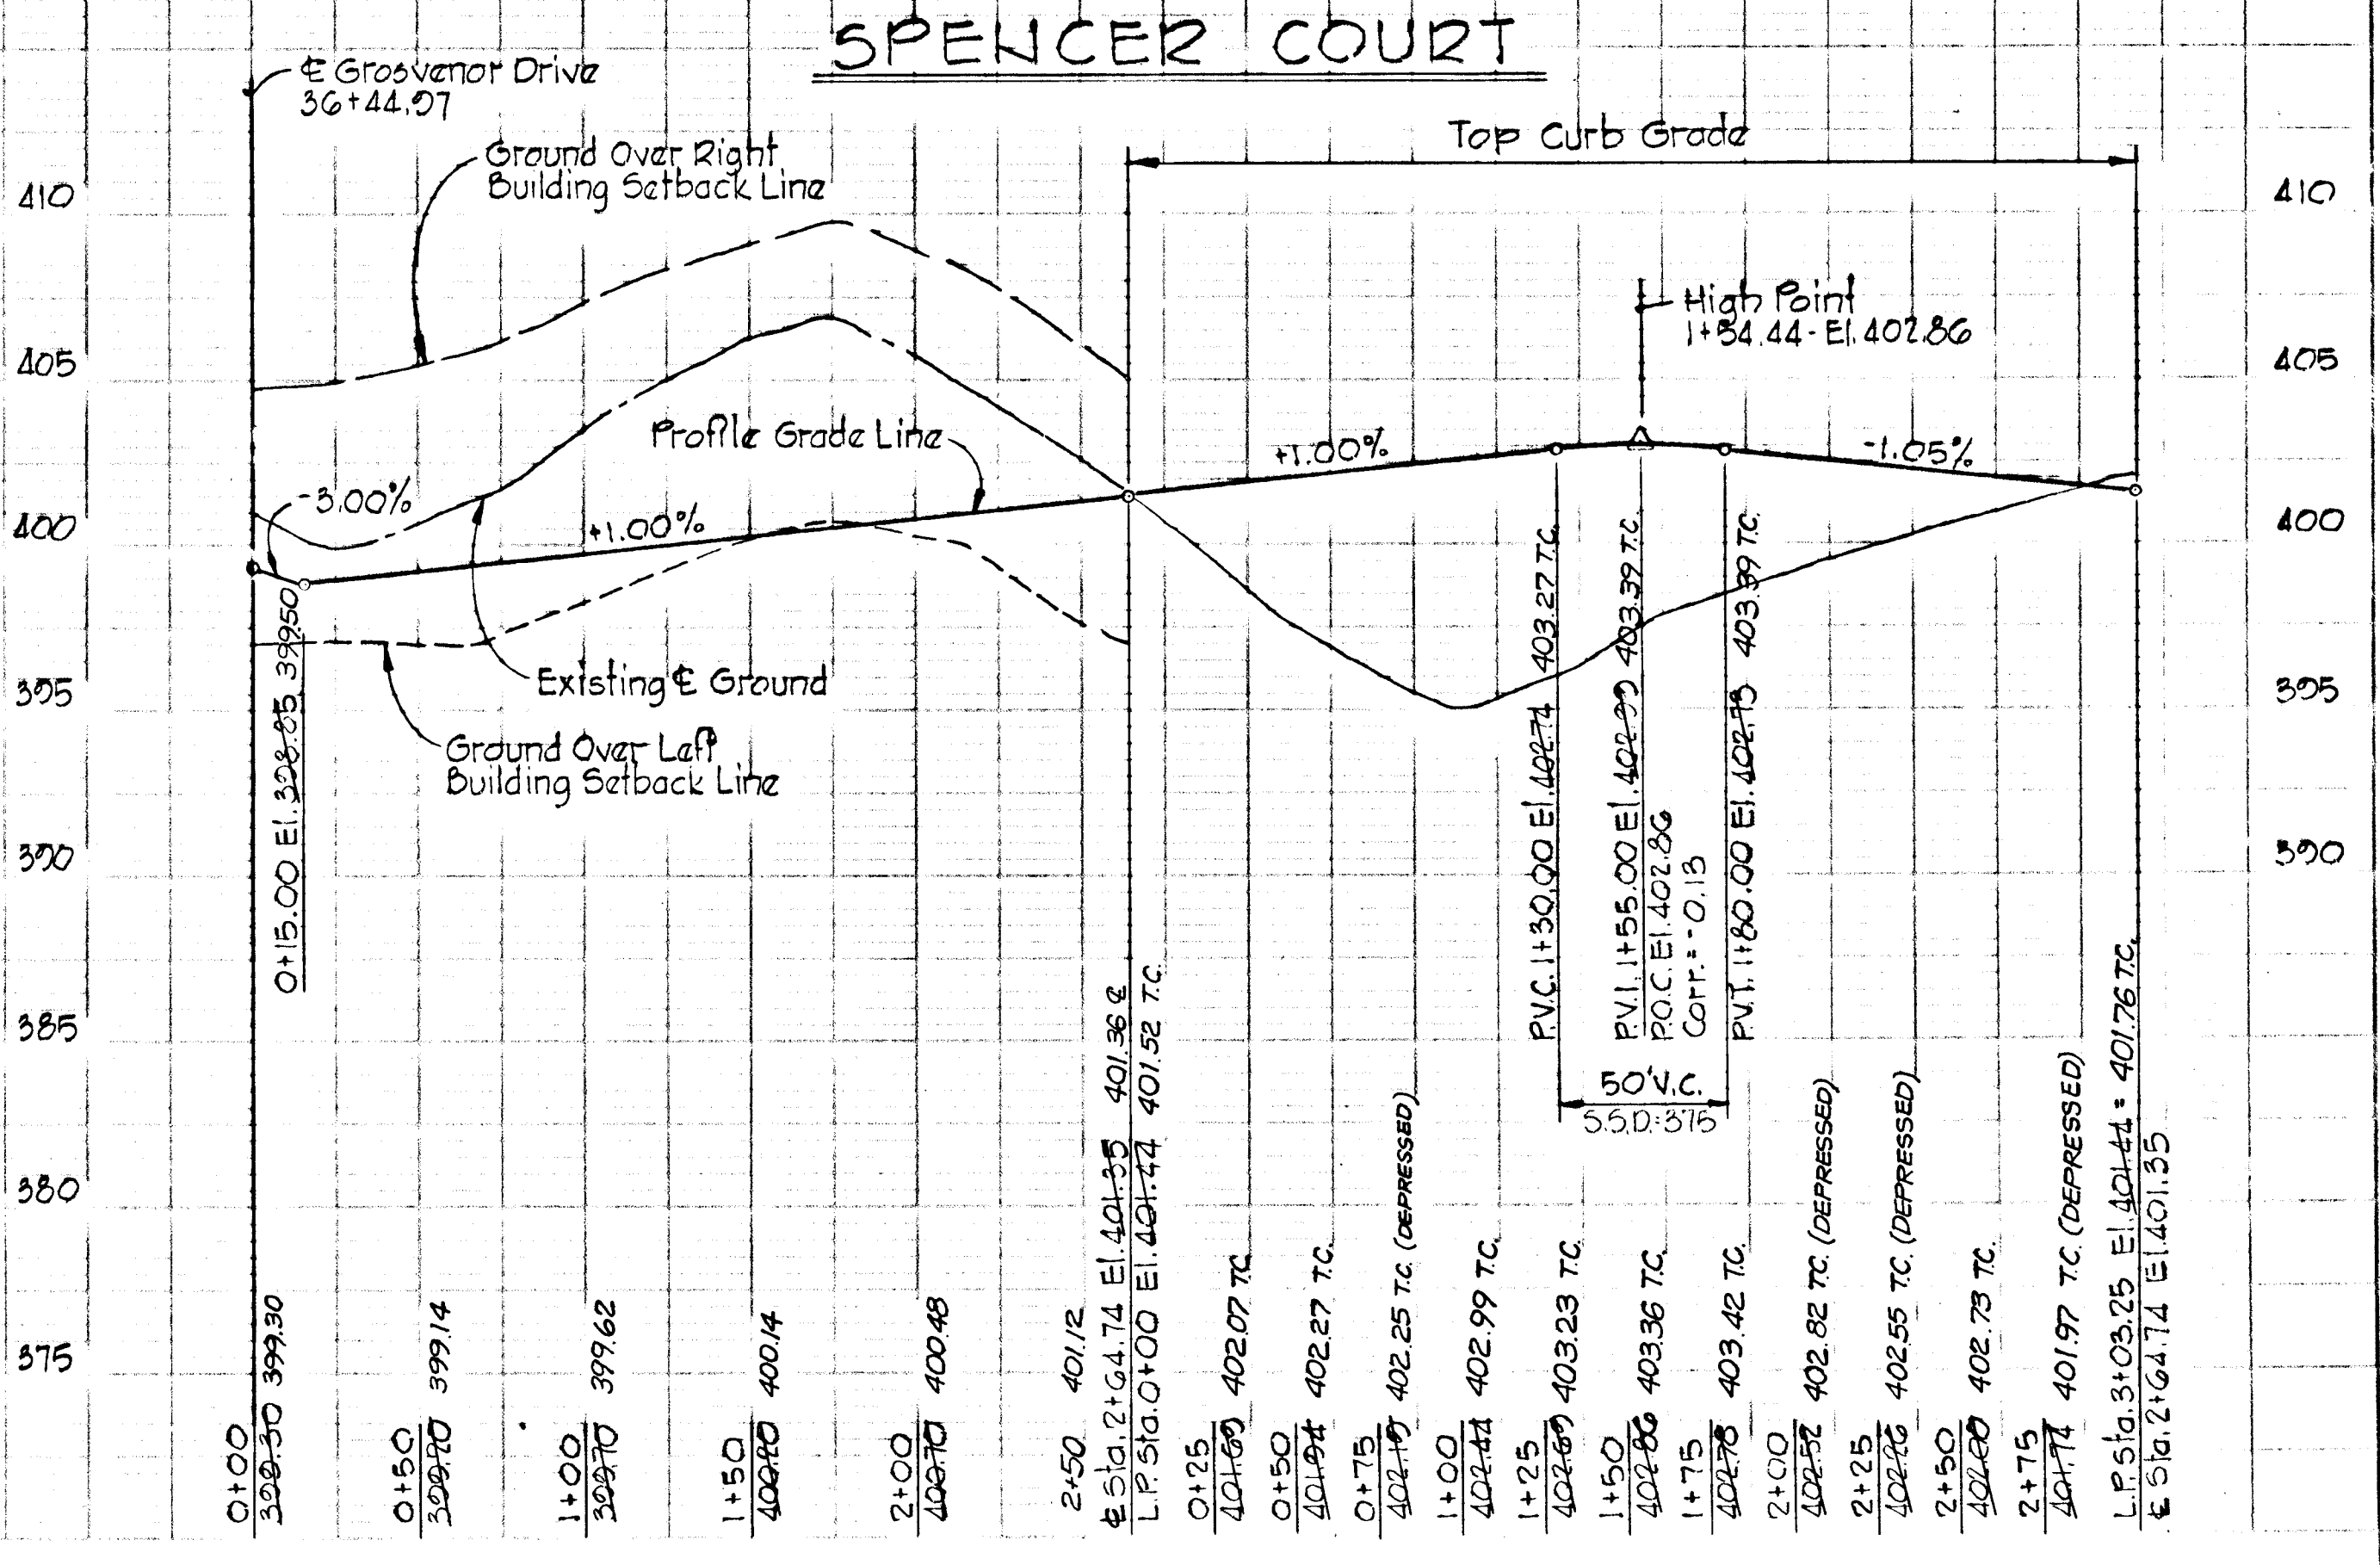 SPENCER COURT
℄ Grosvenor Drive
36+44.97
Ground Over Right
Building Setback Line
Top Curb Grade
410
410
High Point
1+54.44 - El. 402.86
405
405
Profile Grade Line
+1.00%
-1.05%
-3.00%
+1.00%
400
400
0+15.00 El. 398.85 399.50
Existing ℄ Ground
395
395
Ground Over Left
Building Setback Line
390
390
P.V.C. 1+30.00 El. 402.74 403.27 T.C.
P.V.I. 1+55.00 El. 402.99 403.39 T.C.
P.O.C. El. 402.86
Corr. = -0.13
P.V.T. 1+80.00 El. 402.73 403.39 T.C.
385
50' V.C.
S.S.D. = 375
380
375
0+00
399.30 399.30
0+50
399.20 399.14
1+00
399.70 399.62
1+50
400.20 400.14
2+00
400.70 400.48
2+50 401.12
℄ Sta. 2+64.74 El. 401.35 401.36 ℄
L.P. Sta. 0+00 El. 401.44 401.52 T.C.
0+25
401.69 402.07 T.C.
0+50
401.94 402.27 T.C.
0+75
402.19 402.25 T.C. (DEPRESSED)
1+00
402.44 402.99 T.C.
1+25
402.69 403.23 T.C.
1+50
402.86 403.36 T.C.
1+75
402.78 403.42 T.C.
2+00
402.52 402.82 T.C. (DEPRESSED)
2+25
402.26 402.55 T.C. (DEPRESSED)
2+50
402.00 402.73 T.C.
2+75
401.74 401.97 T.C. (DEPRESSED)
L.P. Sta. 3+03.25 El. 401.44 = 401.76 T.C.
℄ Sta. 2+64.74 El. 401.35